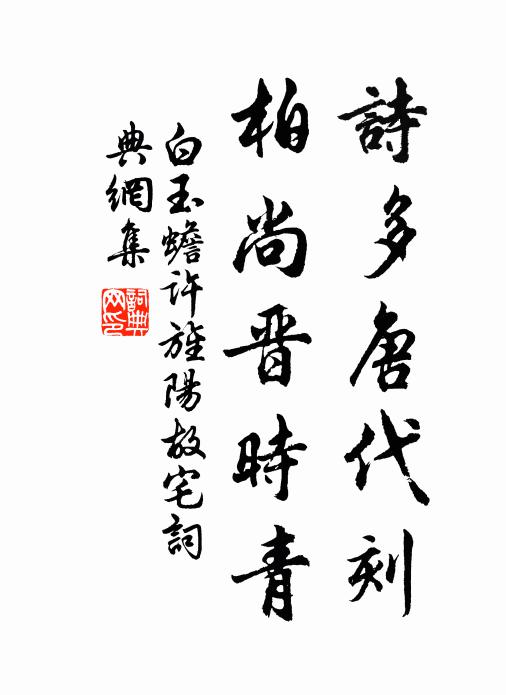 詩多唐代刻
柏尚晋時青
白玉蟾許旌陽故宅詞
典網集
詞典網印